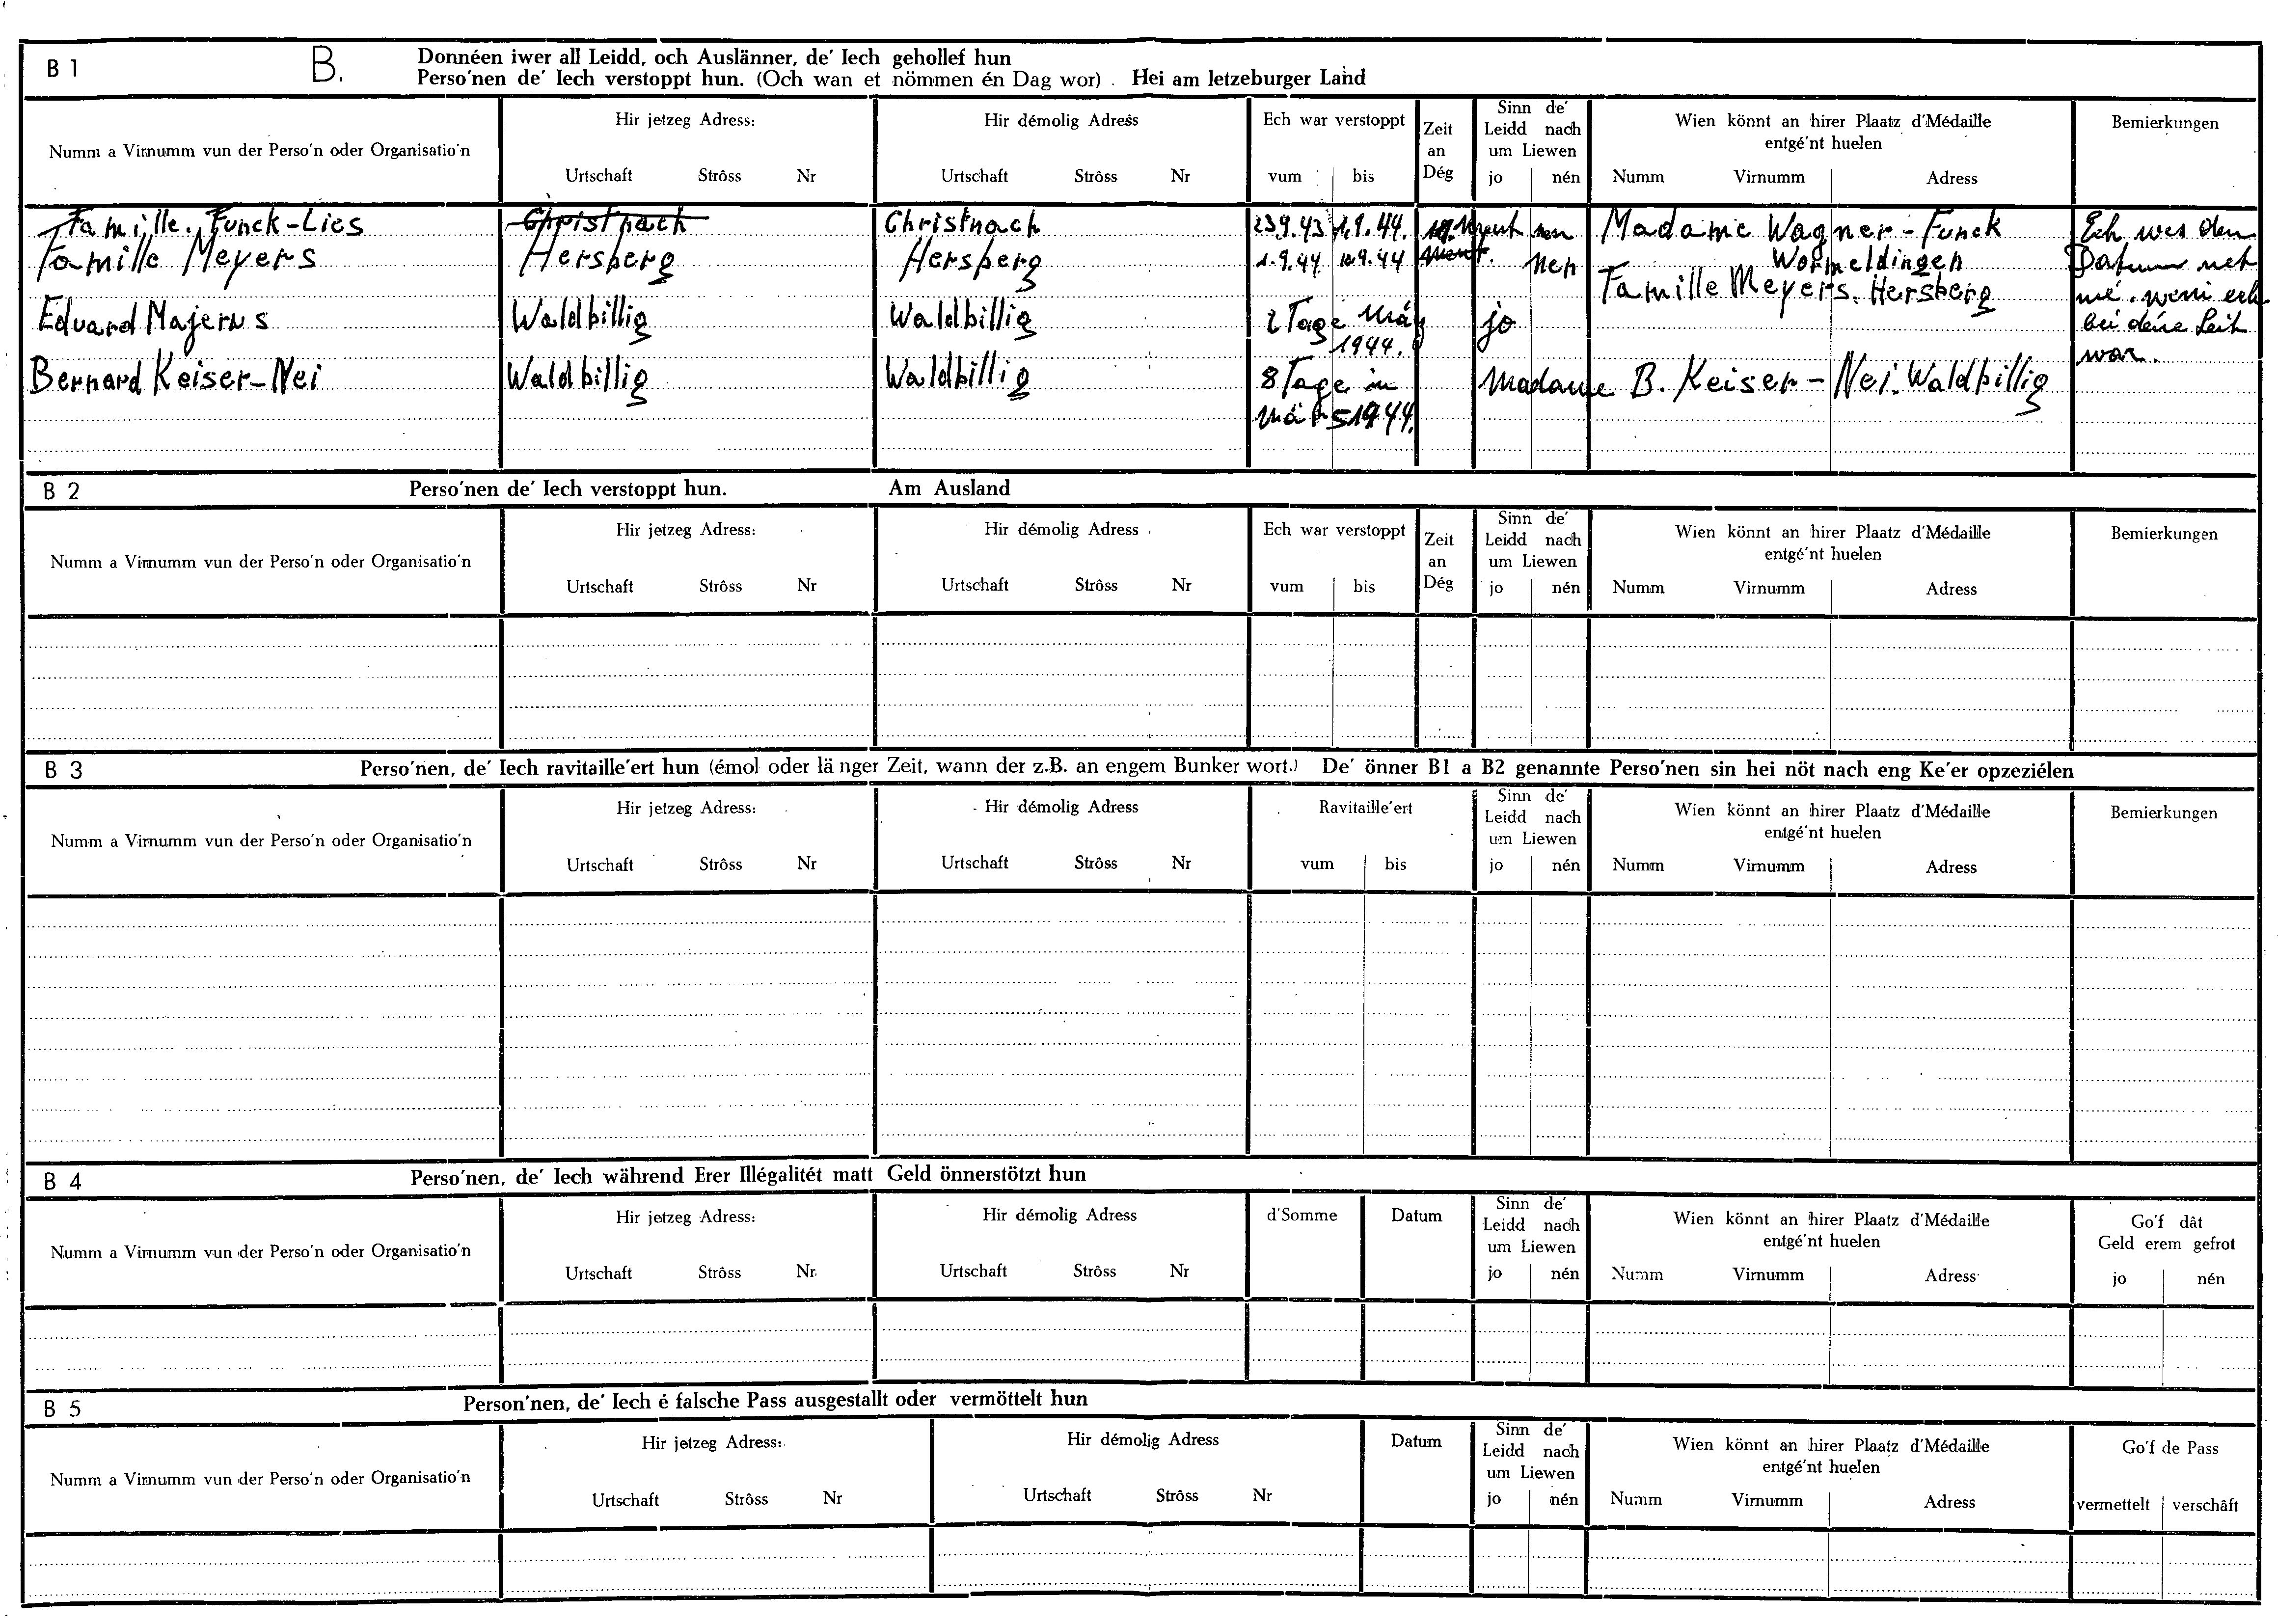 B 1
B.
Donnéen iwer all Leidd, och Auslänner, de' Iech gehollef hun
Perso'nen de' Iech verstoppt hun. (Och wan et nömmen én Dag wor) . Hei am letzeburger Land
Numm a Virnumm vun der Perso'n oder Organisatio'n
Hir jetzeg Adress:
Urtschaft Strôss Nr
Hir démolig Adress
Urtschaft Strôss Nr
Ech war verstoppt
vum bis
Zeit
an
Dég
Sinn de'
Leidd nach
um Liewen
jo nén
Wien könnt an hirer Plaatz d'Médaille
entgé'nt huelen
Numm Virnumm Adress
Bemierkungen
Famille Funck-Lies Christnach Christnach 23.9.43 1.9.44. nen Madame Wagner-Funck
Wormeldingen
Famille Meyers Hersberg Hersberg 1.9.44 10.9.44 nen Famille Meyers. Hersberg
Eduard Majerus Waldbillig Waldbillig 2 Tage
1944. jo
Bernard Keiser-Nei Waldbillig Waldbillig 8 Tage in
März 1944. Madame B. Keiser-Nei. Waldbillig
Ech wes den
Datum net
mé. weni ech
bei deine Leit
war.
B 2
Perso'nen de' Iech verstoppt hun. Am Ausland
Numm a Virnumm vun der Perso'n oder Organisatio'n
Hir jetzeg Adress:
Urtschaft Strôss Nr
Hir démolig Adress
Urtschaft Strôss Nr
Ech war verstoppt
vum bis
Zeit
an
Dég
Sinn de'
Leidd nach
um Liewen
jo nén
Wien könnt an hirer Plaatz d'Médaille
entgé'nt huelen
Numm Virnumm Adress
Bemierkungen
B 3
Perso'nen, de' Iech ravitaille'ert hun (émol oder länger Zeit, wann der z.B. an engem Bunker wort.) De' önner B1 a B2 genannte Perso'nen sin hei nöt nach eng Ke'er opzeziélen
Numm a Virnumm vun der Perso'n oder Organisatio'n
Hir jetzeg Adress:
Urtschaft Strôss Nr
Hir démolig Adress
Urtschaft Strôss Nr
Ravitaille'ert
vum bis
Sinn de'
Leidd nach
um Liewen
jo nén
Wien könnt an hirer Plaatz d'Médaille
entgé'nt huelen
Numm Virnumm Adress
Bemierkungen
B 4
Perso'nen, de' Iech während Erer Illégalitét matt Geld önnerstötzt hun
Numm a Virnumm vun der Perso'n oder Organisatio'n
Hir jetzeg Adress:
Urtschaft Strôss Nr.
Hir démolig Adress
Urtschaft Strôss Nr
d'Somme
Datum
Sinn de'
Leidd nach
um Liewen
jo nén
Wien könnt an hirer Plaatz d'Médaille
entgé'nt huelen
Numm Virnumm Adress
Go'f dât
Geld erem gefrot
jo nén
B 5
Person'nen, de' Iech é falsche Pass ausgestallt oder vermöttelt hun
Numm a Virnumm vun der Perso'n oder Organisatio'n
Hir jetzeg Adress:
Urtschaft Strôss Nr
Hir démolig Adress
Urtschaft Strôss Nr
Datum
Sinn de'
Leidd nach
um Liewen
jo nén
Wien könnt an hirer Plaatz d'Médaille
entgé'nt huelen
Numm Virnumm Adress
Go'f de Pass
vermettelt verschâft